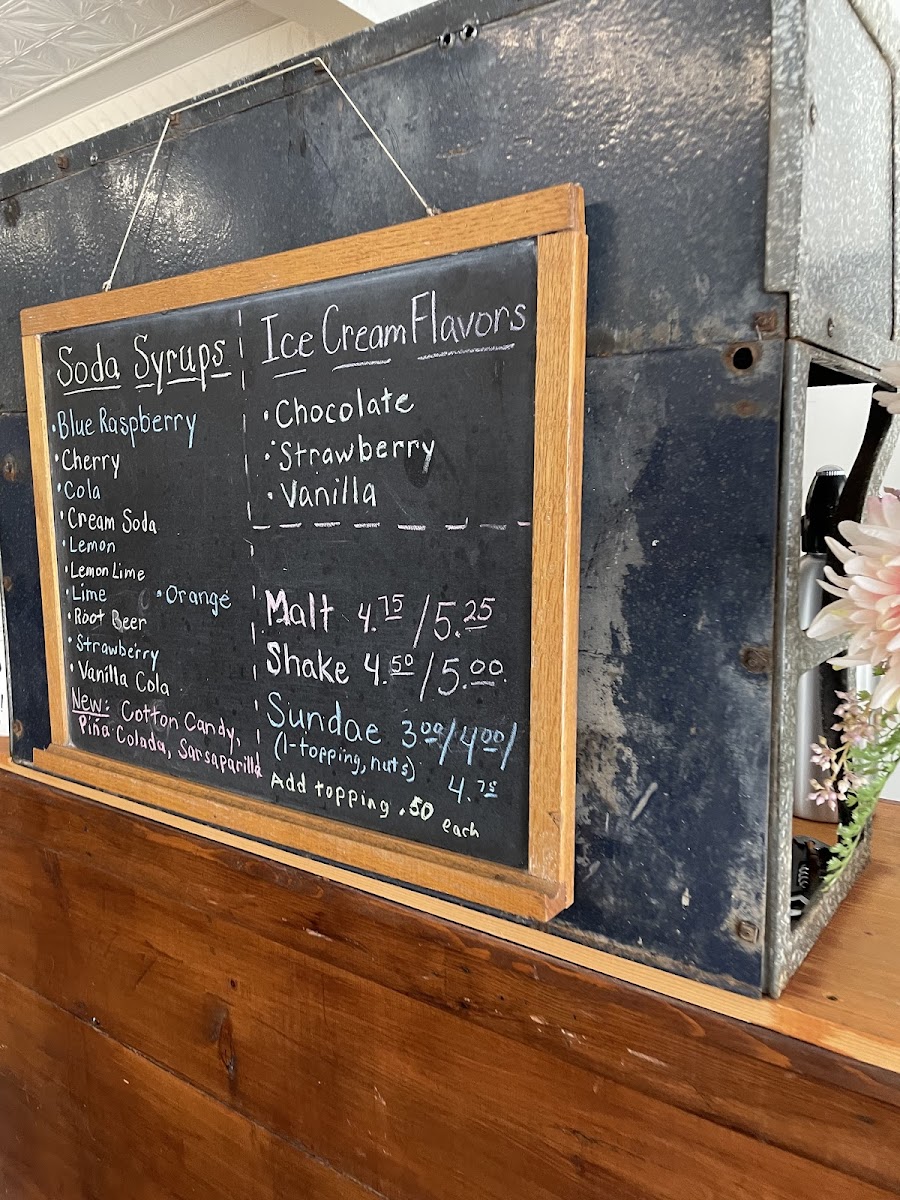 Soda Syrups
• Blue Raspberry
• Cherry
• Cola
• Cream Soda
• Lemon
• Lemon Lime
• Lime
• Orange
• Root Beer
• Strawberry
• Vanilla Cola
New: Cotton Candy,
Piña Colada, Sarsaparilla
Ice Cream Flavors
• Chocolate
• Strawberry
• Vanilla
Malt 4.75/5.25
Shake 4.50/5.00
Sundae 3.00/4.00/
(1-topping, nuts) 4.75
Add topping .50 each